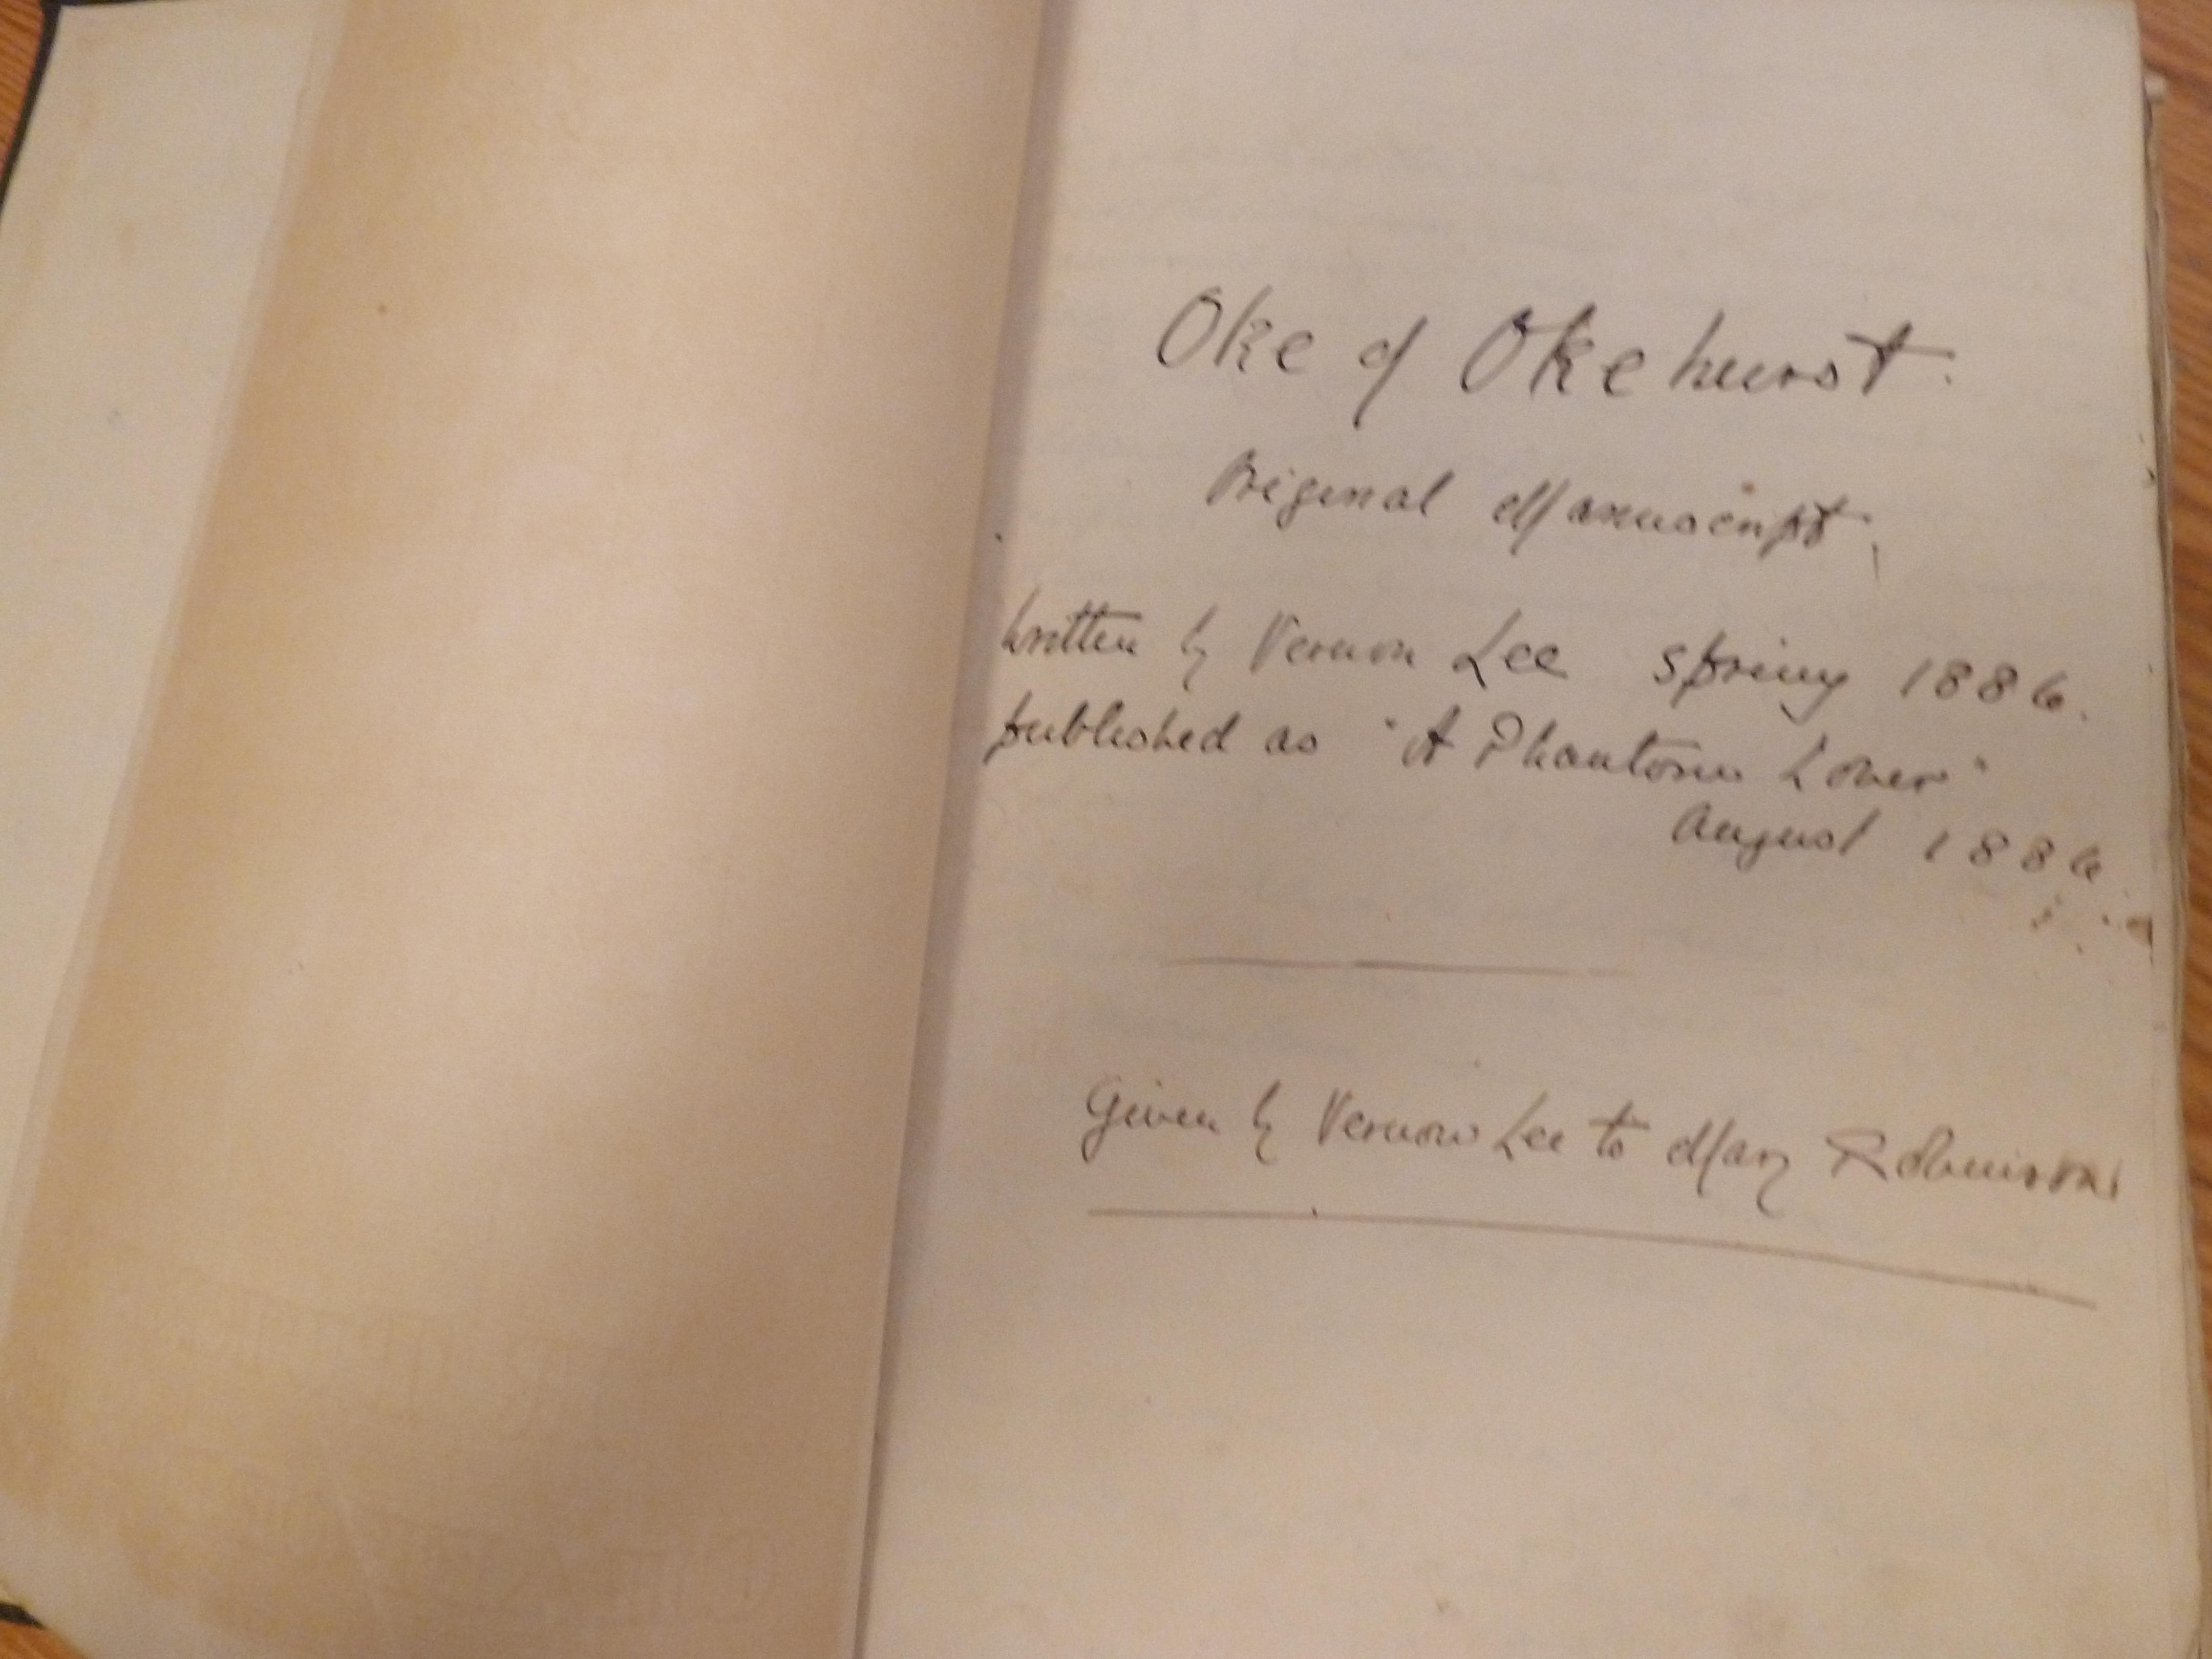 Oke of Okehurst.
Original Manuscript,
written by Vernon Lee spring 1886.
published as "A Phantom Lover"
August 1886.
Given by Vernon Lee to Mary Robinson.